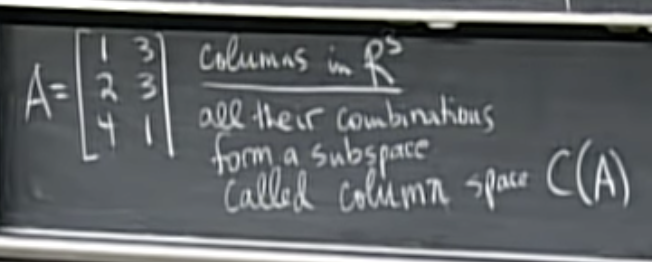 A = [1 3; 2 3; 4 1]
columns in R³
all their combinations
form a subspace
called column space C(A)